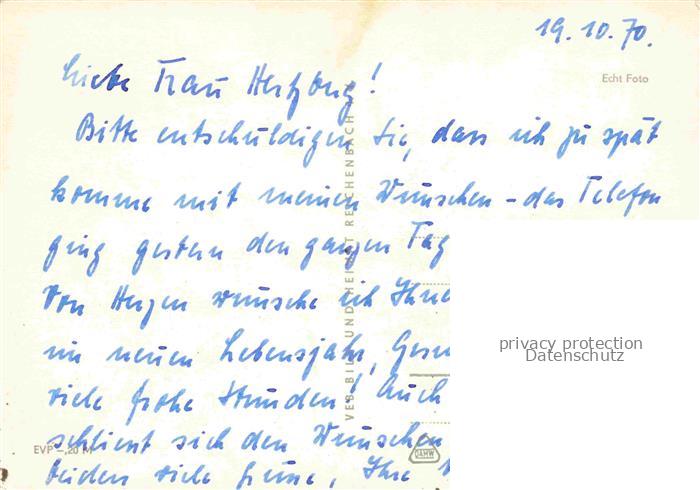 19. 10. 70.
Echt Foto
Liebe Frau Hertzberg!
Bitte entschuldigen Sie, dass ich zu spät
komme mit meinen Wünschen – das Telefon
ging gestern den ganzen Tag
Von Herzen wünsche ich Ihne
im neuen Lebensjahr, Gesu
viele frohe Stunden! Auch
schließt sich den Wünschen
beiden viele Grüße, Ihre
VEB BILD UND HEIMAT REICHENBACH
EVP –,20 M
DAHW
privacy protection
Datenschutz